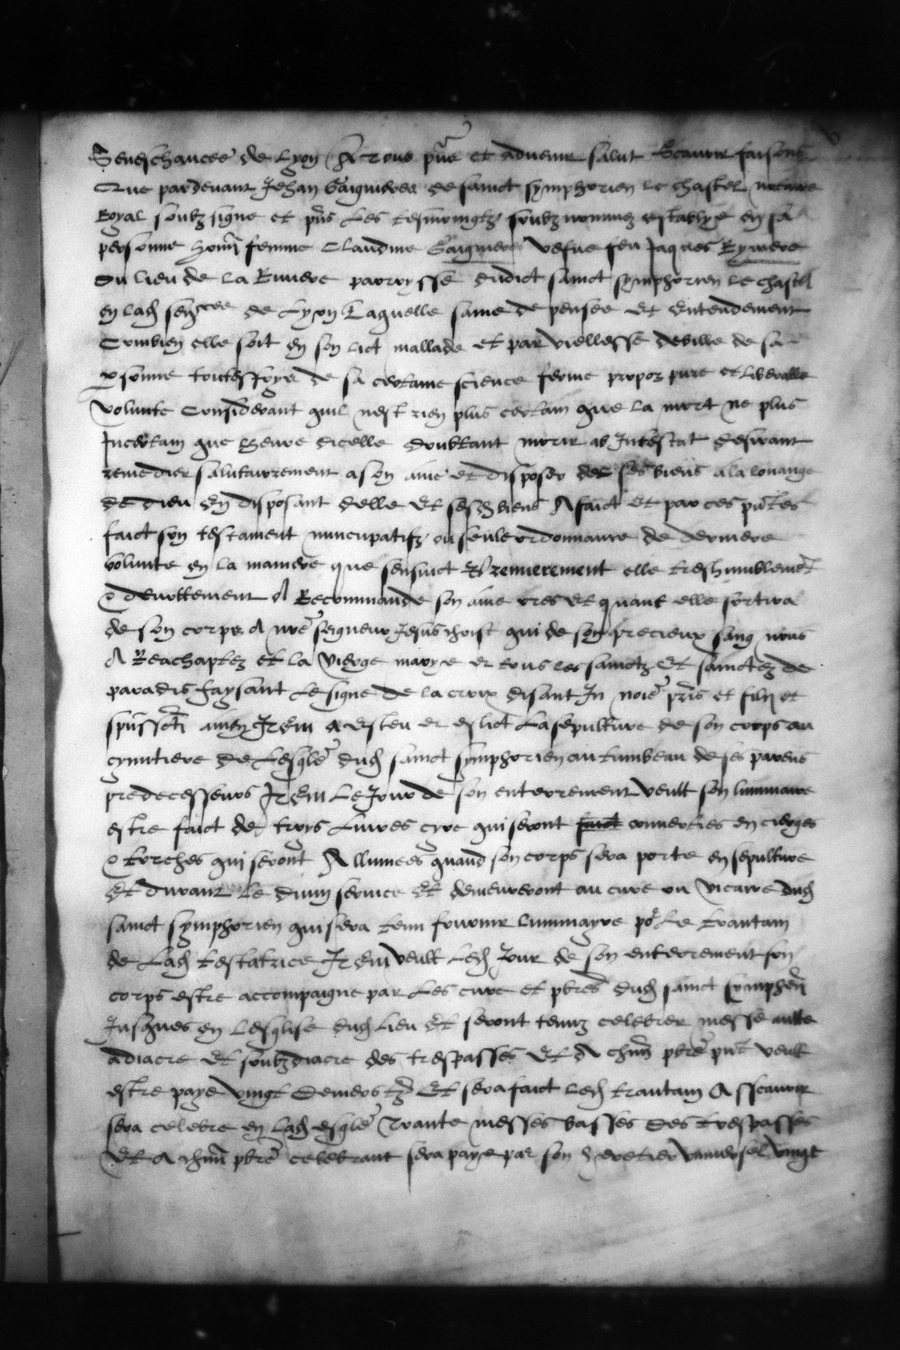 Seneschaucee de Lyon A tous pñs et advenir salut Scavoir faisons
Que pardevant Jehan Gaignieres de sainct symphorien le chastel notaire
Royal soubz signe et pñs Les tesmoingtz soubz nommez establye en sa
personne honnˡ femme Claudine Gaigniere vefve feu Jaques Ryviere
du lieu de la Riviere parroysse dudict sainct symphorien le chastel
en lad senᶜᵉᵉ de Lyon Laquelle saine de pensee et entendement
Combien elle soit en son lict mallade et par viellesse debille de sa
psonne toutesfoys de sa certaine science ferme propoz pure et liberalle
volunte Considerant quil nest rien plus certain que la mort ne plus
Incertain que lheure dicelle doubtant morir ab Intestat desirant
remedier salutairement a son ame et disposer des ses biens a la louange
de dieu en disposant delle et sesd biens A faict et par ces pñtes
faict son testament nuncupatifz ou seule ordonnance de derniere
volunte en la maniere que sensuict Et premierement elle treshumblemẽt
& devottement A Recommande son ame ores et quant elle sortira
de son corps A nrẽ seigneur Jesus christ qui de son precieux sang nous
A Reachaptez et la vierge marye et tous les sainctz et sainctez de
paradis faysant Le signe de la croix disant In noiẽ pr̃is et filii et
spũssctĩ amen Item a esleu et eslict La sepulture de son corps au
cymitiere de Lesglẽ dud sainct symphorien au tumbeau de ses parens
predecesseurs Item Le Jour de son enterrement veult son luminaire
estre faict de troys Livres cyre qui seront faict converties en cierges
& torches qui seront Allumees quand son corps sera porte en sepulture
Et durant Le divin service Et demeureront au cure ou vicaire dud
sainct symphorien qui sera tenu fournir luminayre poʳ Le trantain
de Lad testatrice Item veult Led Jour de son enterrement son
corps estre accompaigne par Les cure et pbrẽs dud sainct symphẽn
Jusques en Lesglise dud Lieu Et seront tenuz celebrer messe aulte
a diacre et soubzdiacre des trespasses Et A chũn pbrẽ pñt veult
estre paye vingt deniers tz Et sera faict led trantain Assavoir
sera celebre en lad esglẽ trante messes basses des trespasses
Et A chũn pbrẽ celebrant sera paye par son heretier universel vingt